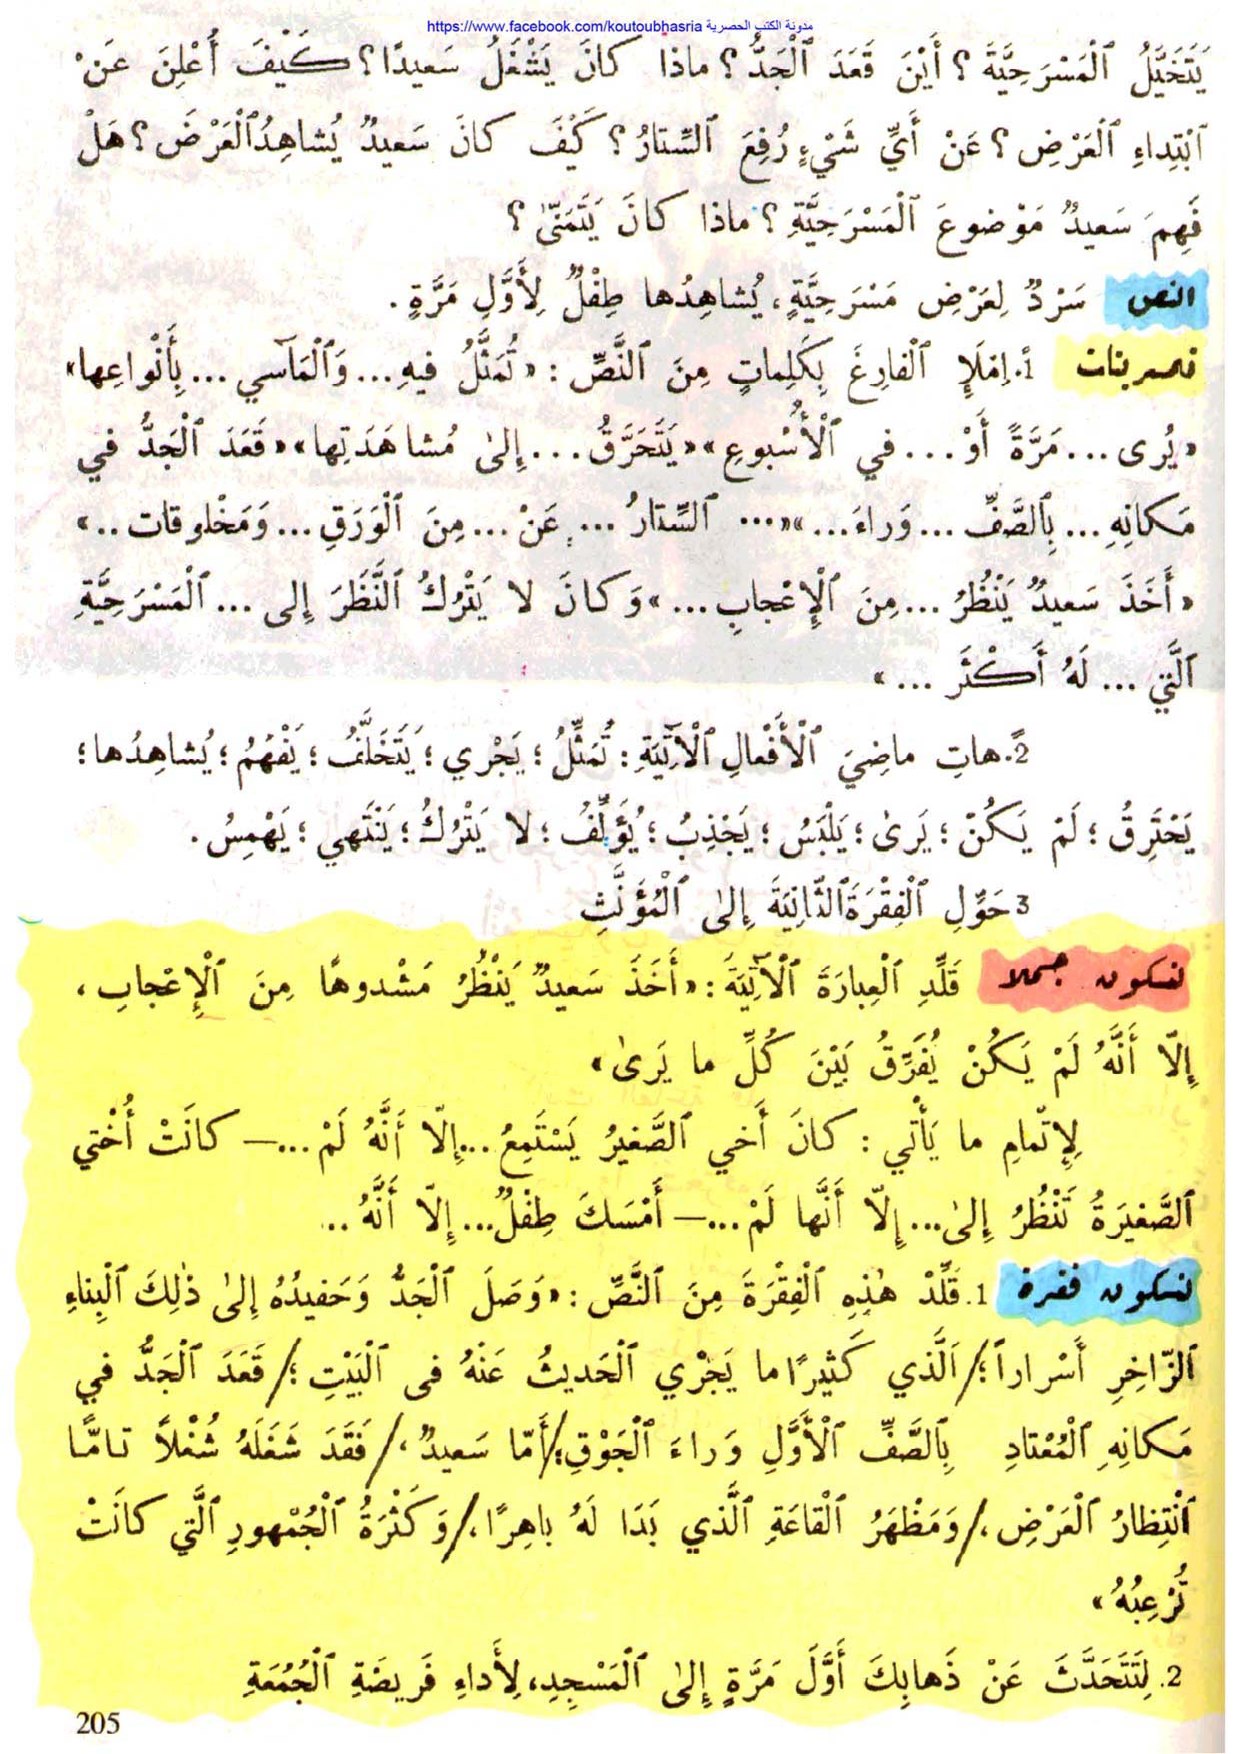 https://www.facebook.com/koutoubhasria مدونة الكتب الحصرية
يَتَخَيَّلُ ٱلْمَسْرَحِيَّةَ ؟ أَيْنَ قَعَدَ ٱلْجَدُّ ؟ ماذا كانَ يَشْغَلُ سَعيدًا ؟ كَيْفَ أُعْلِنَ عَنْ
ٱبْتِداءِ ٱلْعَرْضِ ؟ عَنْ أَيِّ شَيْءٍ رُفِعَ ٱلسِّتارُ ؟ كَيْفَ كانَ سَعيدٌ يُشاهِدُ ٱلْعَرْضَ ؟ هَلْ
فَهِمَ سَعيدٌ مَوْضوعَ ٱلْمَسْرَحِيَّةِ ؟ ماذا كانَ يَتَمَنّىٰ ؟
النص سَرْدٌ لِعَرْضِ مَسْرَحِيَّةٍ، يُشاهِدُها طِفْلٌ لِأَوَّلِ مَرَّةٍ.
تمرينات 1. اِمْلَإِ ٱلْفارِغَ بِكَلِماتٍ مِنَ ٱلنَّصِّ : « تُمَثَّلُ فيهِ ... وَٱلْمَآسي ... بِأَنْواعِها»
« يُرى ... مَرَّةً أَوْ ... في ٱلْأُسْبوعِ » « يَتَحَرَّقُ ... إِلىٰ مُشاهَدَتِها » « قَعَدَ ٱلْجَدُّ في
مَكانِهِ ... بِٱلصَّفِّ ... وَراءَ ... » « ... ٱلسِّتارُ ... عَنْ ... مِنَ ٱلْوَرَقِ ... وَمَخْلوقات .. »
« أَخَذَ سَعيدٌ يَنْظُرُ ... مِنَ ٱلْإِعْجابِ ... » وَكانَ لا يَتْرُكُ ٱلنَّظَرَ إِلى ... ٱلْمَسْرَحِيَّةِ
ٱلَّتي ... لَهُ أَكْثَرَ ... »
2. هاتِ ماضِيَ ٱلْأَفْعالِ ٱلْآتِيَةِ : تُمَثِّلُ ؛ يَجْري ؛ يَتَخَلَّفُ ؛ يَفْهَمُ ؛ يُشاهِدُها ؛
يَحْتَرِقُ ؛ لَمْ يَكُنْ ؛ يَرىٰ ؛ يَلْبَسُ ؛ يَجْذِبُ ؛ يُؤَلِّفُ ؛ لا يَتْرُكُ ؛ يَنْتَهي ؛ يَهْمِسُ .
3 حَوِّلِ ٱلْفِقْرَةَ ٱلثّانِيَةَ إِلىٰ ٱلْمُؤَنَّثِ
لتكوين جملا قَلِّدِ ٱلْعِبارَةَ ٱلْآتِيَةَ : « أَخَذَ سَعيدٌ يَنْظُرُ مَشْدوهًا مِنَ ٱلْإِعْجابِ ،
إِلّا أَنَّهُ لَمْ يَكُنْ يُفَرِّقُ بَيْنَ كُلِّ ما يَرىٰ »
لِإِتْمامِ ما يَأْتي : كانَ أَخي ٱلصَّغيرُ يَسْتَمِعُ ... إِلّا أَنَّهُ لَمْ ... — كانَتْ أُخْتي
ٱلصَّغيرَةُ تَنْظُرُ إِلىٰ ... إِلّا أَنَّها لَمْ ... — أَمْسَكَ طِفْلٌ ... إِلّا أَنَّهُ ..
لتكوين فقرة 1. قَلِّدْ هٰذِهِ ٱلْفِقْرَةَ مِنَ ٱلنَّصِّ : « وَصَلَ ٱلْجَدُّ وَحَفيدُهُ إِلىٰ ذٰلِكَ ٱلْبِناءِ
ٱلزّاخِرِ أَسْراراً ؛/ ٱلَّذي كَثيرًا ما يَجْري ٱلْحَديثُ عَنْهُ فى ٱلْبَيْتِ ؛/ قَعَدَ ٱلْجَدُّ في
مَكانِهِ ٱلْمُعْتادِ بِٱلصَّفِّ ٱلْأَوَّلِ وَراءَ ٱلْجَوْقِ ؛/ أَمّا سَعيدٌ ،/ فَقَدَ شَغَلَهُ شُغْلاً تامًّا
ٱنْتِظارُ ٱلْعَرْضِ ،/ وَمَظْهَرُ ٱلْقاعَةِ ٱلَّذي بَدَا لَهُ باهِرًا ،/ وَكَثْرَةُ ٱلْجُمْهورِ ٱلَّتي كانَتْ
تُرْعِبُهُ »
2. لِتَتَحَدَّثَ عَنْ ذَهابِكَ أَوَّلَ مَرَّةٍ إِلىٰ ٱلْمَسْجِدِ، لِأَداءِ فَريضَةِ ٱلْجُمُعَةِ
205